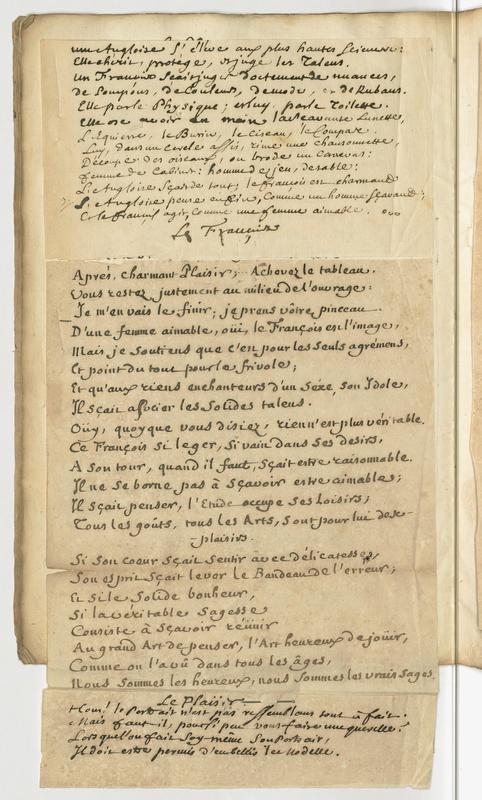 une Angloise s'élève aux plus hautes Sciences:
Elle chérit, protège, et juge les Talens.
Un François sçait juger doctement de nuances,
de Pompons, de Couleurs, de mode, et de Rubans.
Elle parle Physique; et luy, parle Toilette.
Elle ose avoir en main la sçavante Lunette,
L'Equierre, le Burin, le Ciseau, le Compas.
Luy, dans un Cercle assis, rime une chansonnette,
Découpe des oiseaux, ou brode un Canevas:
femme de Cabinet: homme de jeu, de table:
L'Angloise sçait tout; le François est charmant
L'Angloise pense en Dive, Comme un homme sçavant;
Et le François agit, Comme une femme aimable.
Le François
Après, charmant Plaisir; Achevez le tableau.
Vous restez justement au milieu de l'ouvrage:
Je m'en vais le finir; je prens vôtre pinceau.
D'une femme aimable, oüi, le François est l'image,
Mais je soutiens que c'en pour les seuls agrémens,
Et point du tout pour le frivole;
Et qu'aux riens enchanteurs d'un Sexe, son Idole,
Il sçait associer les Solides talens.
Oüy, quoyque vous disiez, rien n'est plus véritable.
Ce François si leger, si vain dans ses desirs,
A son tour, quand il faut, sçait estre raisonnable.
Il ne se borne pas à sçavoir estre aimable;
Il sçait penser, l'Etude occupe ses Loisirs;
Tous les goûts, tous les Arts, sont pour lui des
-plaisirs.
Si son coeur sçait sentir avec délicatesse,
Son esprit sçait lever le Bandeau de l'erreur;
Et si le Solide bonheur,
Si la véritable Sagesse
Consiste à sçavoir réünir
Au grand Art de penser, l'Art heureux de joüir,
Comme on l'a vû dans tous les âges,
Nous Sommes les heureux, nous Sommes les vrais Sages.
Le Plaisir
le Portrait n'est pas ressemblant tout à fait.
Mais faut il, pour si peu vous faire une querelle?
Lorsque l'on fait soy même son Portrait,
Il doit estre permis d'embellir le Modelle.